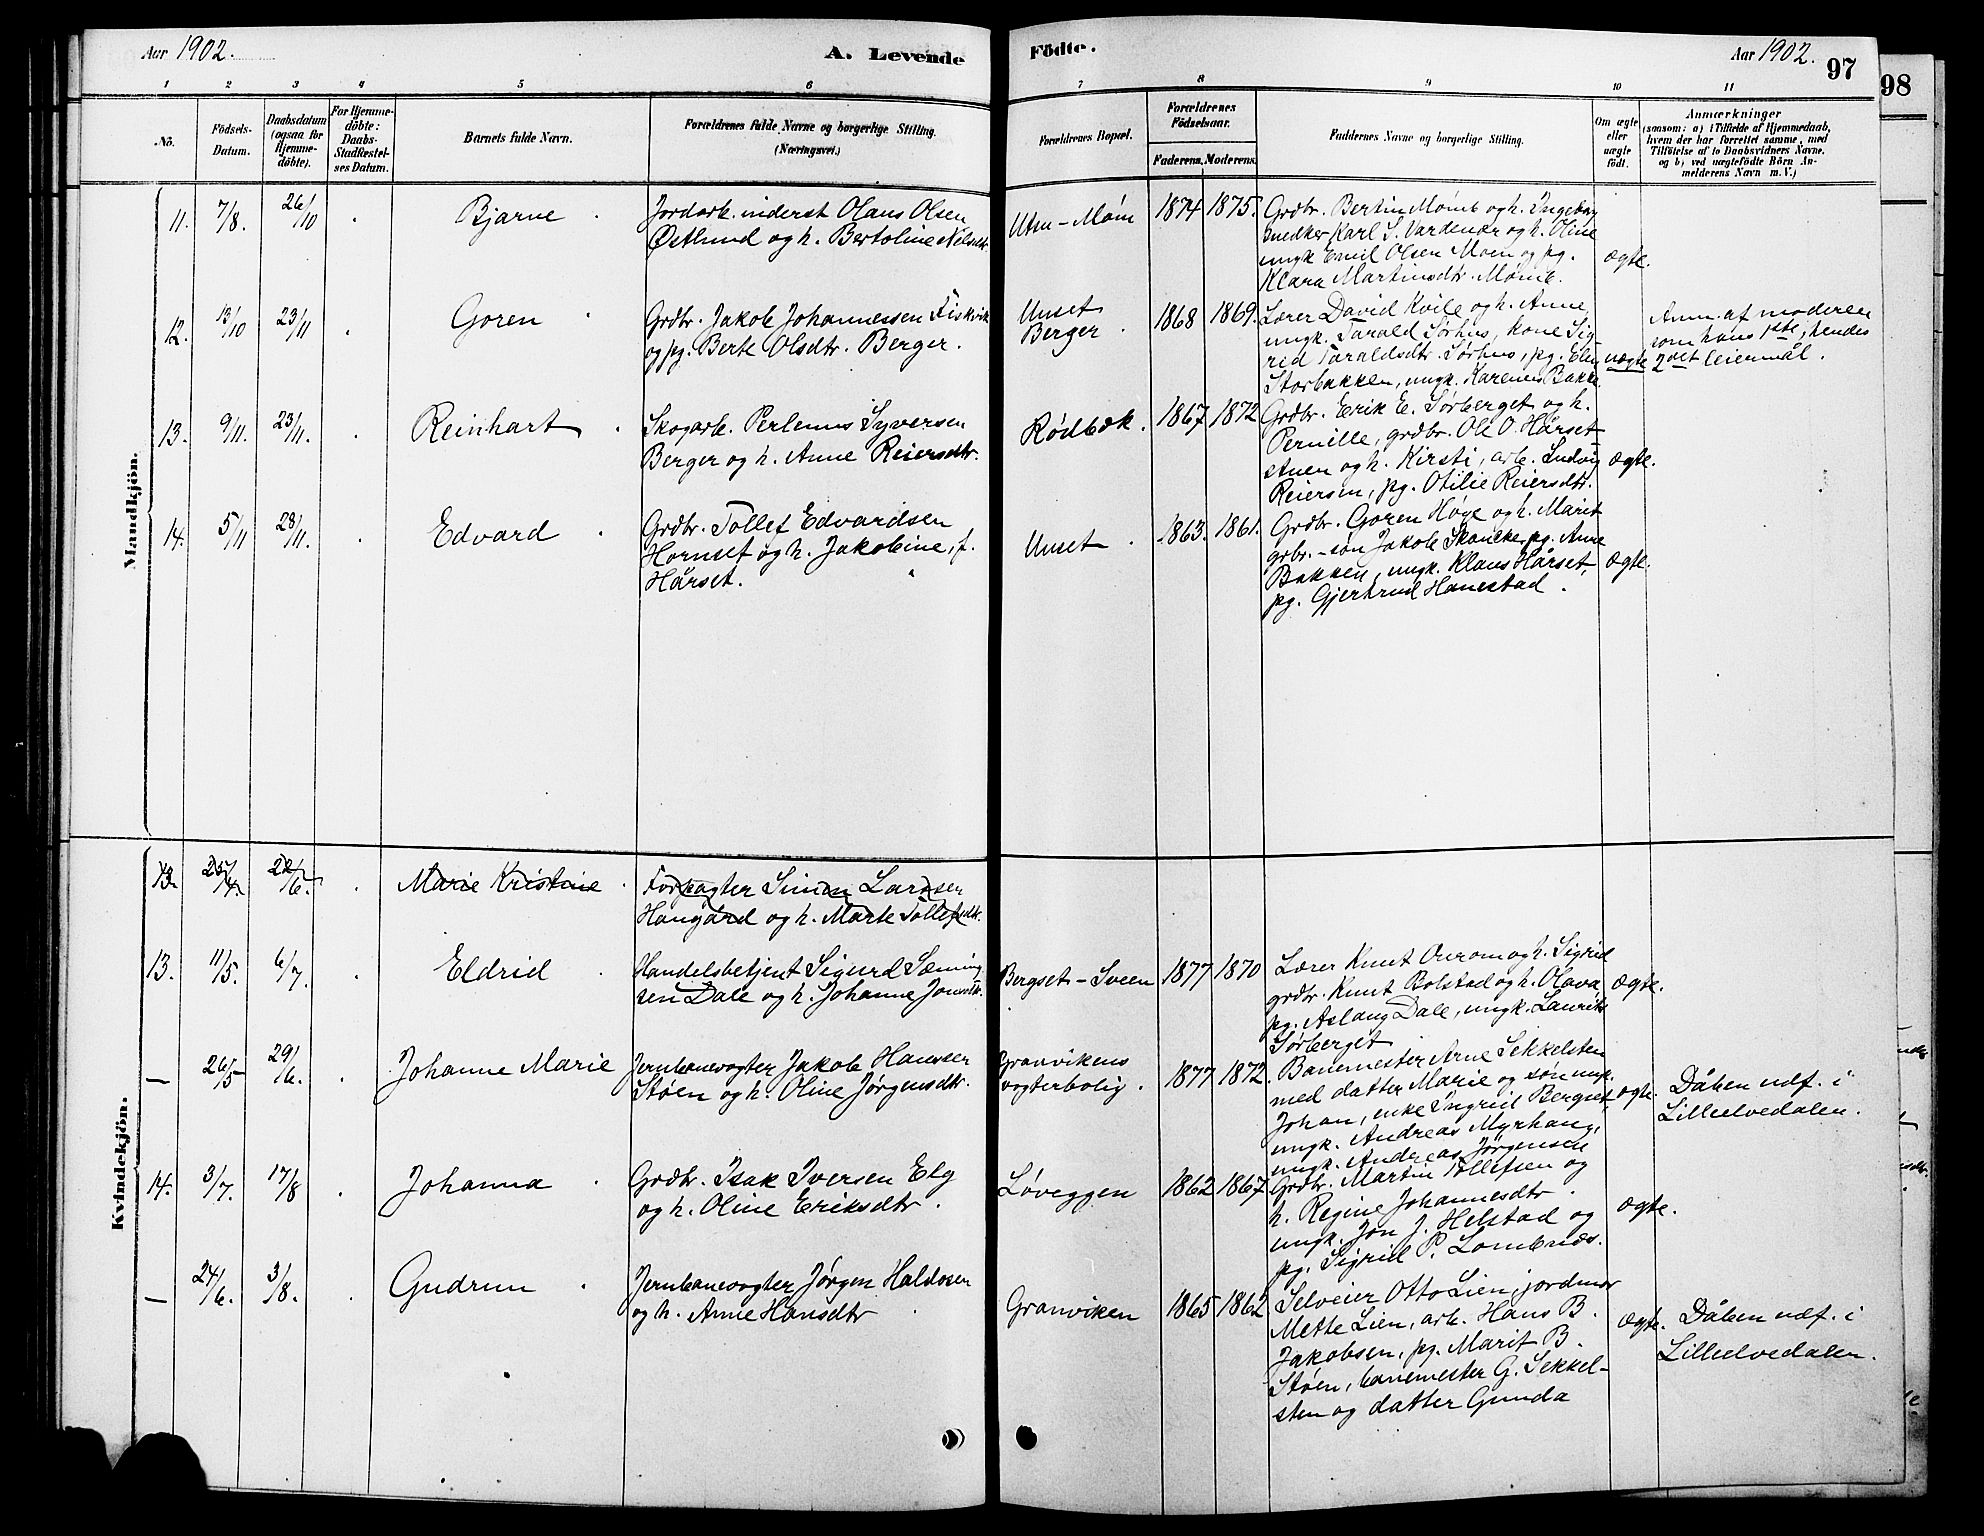 Aar 1902.
A. Levende
Födte.
Aar 1902.
97
98
1 2 3 4 5 6 7 8 9 10 11
No.
Födsels-
Datum.
Daabsdatum
(ogsaa for
Hjemme-
döbte).
For Hjemme-
döbte:
Daabs-
Stadfæstel-
ses Datum.
Barnets fulde Navn.
Forældrenes fulde Navne og borgerlige Stilling.
(Næringsvei.)
Forældrenes Bopæl.
Forældrenes
Födselsaar.
Faderens. Moderens.
Faddernes Navne og borgerlige Stilling.
Om ægte
eller
uægte
født.
Anmærkninger
(saasom: a) i Tilfælde af Hjemmedaab,
hvem der har forrettet samme, med
Tilföielse af to Daabsvidners Navne,
og b) ved uægtefödte Börn An-
melderens Navn m. V.)
Mandkjön.
11. 7/8. 26/10 Bjarne
Jordarb. inderst Olaus Olsen
Østlund og h. Bertoline Nilsdtr.
Utm-Møm
1874 1875.
Grdbr. Bertin Mømb og h. Ingeborg
snedker Karl S. Vardenær og h. Oline
ungk Emil Olsen Moen og pg.
Klara Martinsdtr. Mømb.
ægte.
12. 13/10 23/11 Goren
Grdbr. Jakob Johannessen Fiskvik
og pg. Berte Olsdtr. Berger.
Unset
Berger
1868 1869.
Lærer David Kvile og h. Anne,
ungk. Tarald Sørhus, kone Sig-
rid Taraldsdtr. Sørhus, pg. Elen
Storbakken, ungk. Karenus Bakke
uægte
Anm. af moderen
som hans 1ste, hendes
2det leiermål.
13. 9/11. 23/11. Reinhart
Skogarb. Perlenus Syversen
Berger og h. Anne Reiersdtr.
Rødbæk.
1867 1872
Grdbr. Erik E. Sørberget og h.
Pernille, grdbr. Ole O. Hårset-
stuen og h. Kirsti, arb. Ludvig
Reiersen, pg. Otilie Reiersdtr.
ægte.
14. 5/11 23/11. Edvard
Grdbr. Tollef Edvardsen
Hornset og h. Jakobine, f.
Hårset.
Unset
1863. 1861.
Grdbr. Goren Høye og h. Marit
grbr.-søn Jakob Skancke, pg. Anne
Bakken, ungk. Klaus Hårset,
pg. Gjertrud Hanestad.
ægte.
Kvindekjön.
13. 25/4. 22/6. Marie Kristine
Forpagter Simen Larssen
Haugård og h. Marte Tollefsdtr.
13. 11/5. 6/7. Eldrid
Handelsbetjent Sigurd Sæming-
sen Dale og h. Johanne Jonsdtr.
Bergset-Sveen
1877 1870
Lærer Knut Aurom og h. Sigrid
grdbr. Knut Bolstad og h. Olava,
pg. Aslaug Dale, ungk. Laurits
Sørberget
ægte.
— 26/5 29/6. Johanne Marie
Jernbanevogter Jakob Hanssen
Støen og h. Oline Jørgensdtr.
Granvikens
vogterbolig.
1877 1872
Banemester Arne Sekkelsten
med datter Marie og søn ungk.
Johan, enke Ingrid Bergset,
ungk. Andreas Myrhaug,
ungk. Andreas Jørgensen
ægte.
Dåben udf. i
Lilleelvedalen.
14. 3/7. 17/8 Johanna
Grdbr. Isak Iversen Elg
og h. Oline Eriksdtr.
Løveggen
1862 1867
Grdbr. Martin Tollefsen og
h. Regine Johannesdtr.
ungk. Jon J. Helstad og
pg. Sigrid P. Lombnæs.
ægte.
— 24/6. 3/8. Gudrun
Jernbanevogter Jørgen Haldosen
og h. Anne Hansdtr
Granviken
1865 1862
Selveier Otto Lien, jordmor
Mette Lien, arb. Hans B.
Jakobsen, pg. Marit B.
Støen, banemester G. Sekkel-
sten og datter Gunda
ægte.
Dåben udf. i
Lilleelvedalen.